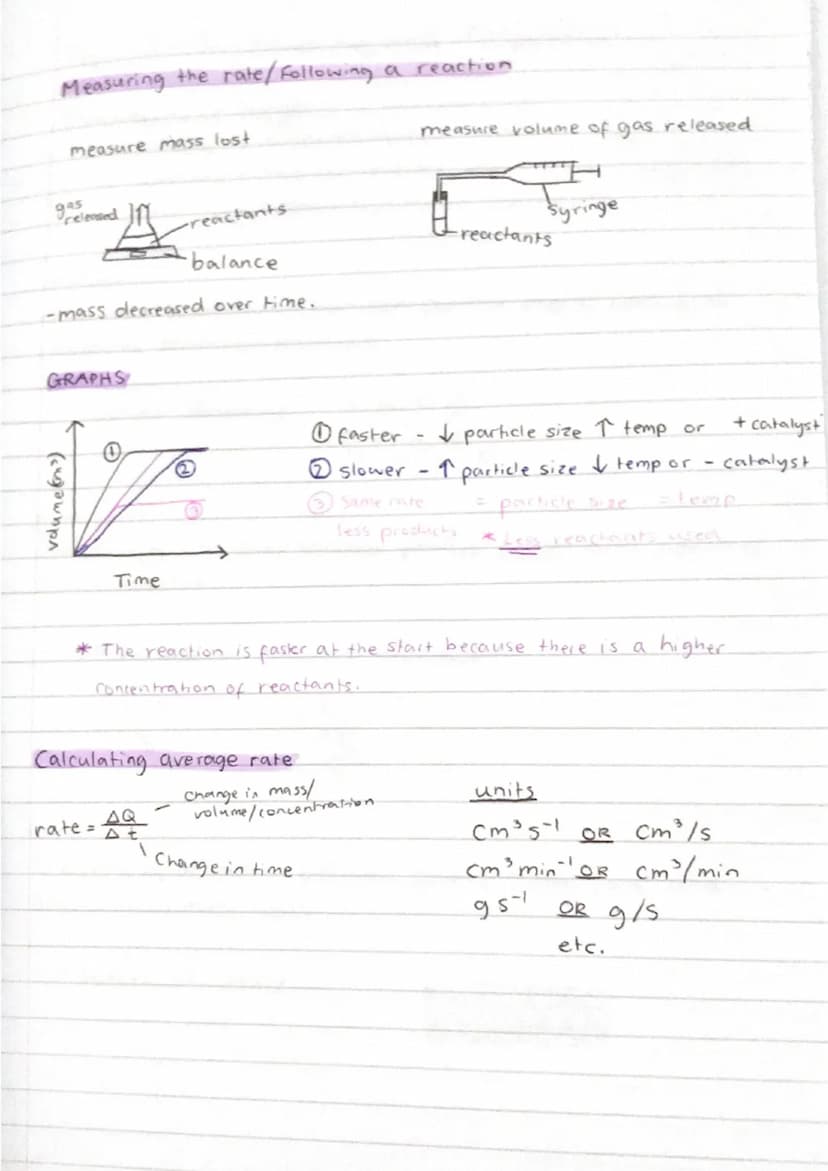 Measuring the rate/Following a reaction
measure mass lost
measure volume of gas released
gas
released
reactants
balance
syringe
reactants
-mass decreased over time.
GRAPHS
volume (cm³)
①
②
③
Time
① faster - ↓ particle size ↑ temp or + catalyst
② slower - ↑ particle size ↓ temp or - catalyst
③ same rate = particle size = temp
less products * Less reactants used
* The reaction is faster at the start because there is a higher
concentration of reactants.
Calculating average rate
rate = ΔQ/Δt
change in mass/
volume/concentration
Change in time
units
cm³s⁻¹ OR cm³/s
cm³min⁻¹ OR cm³/min
gs⁻¹ OR g/s
etc.